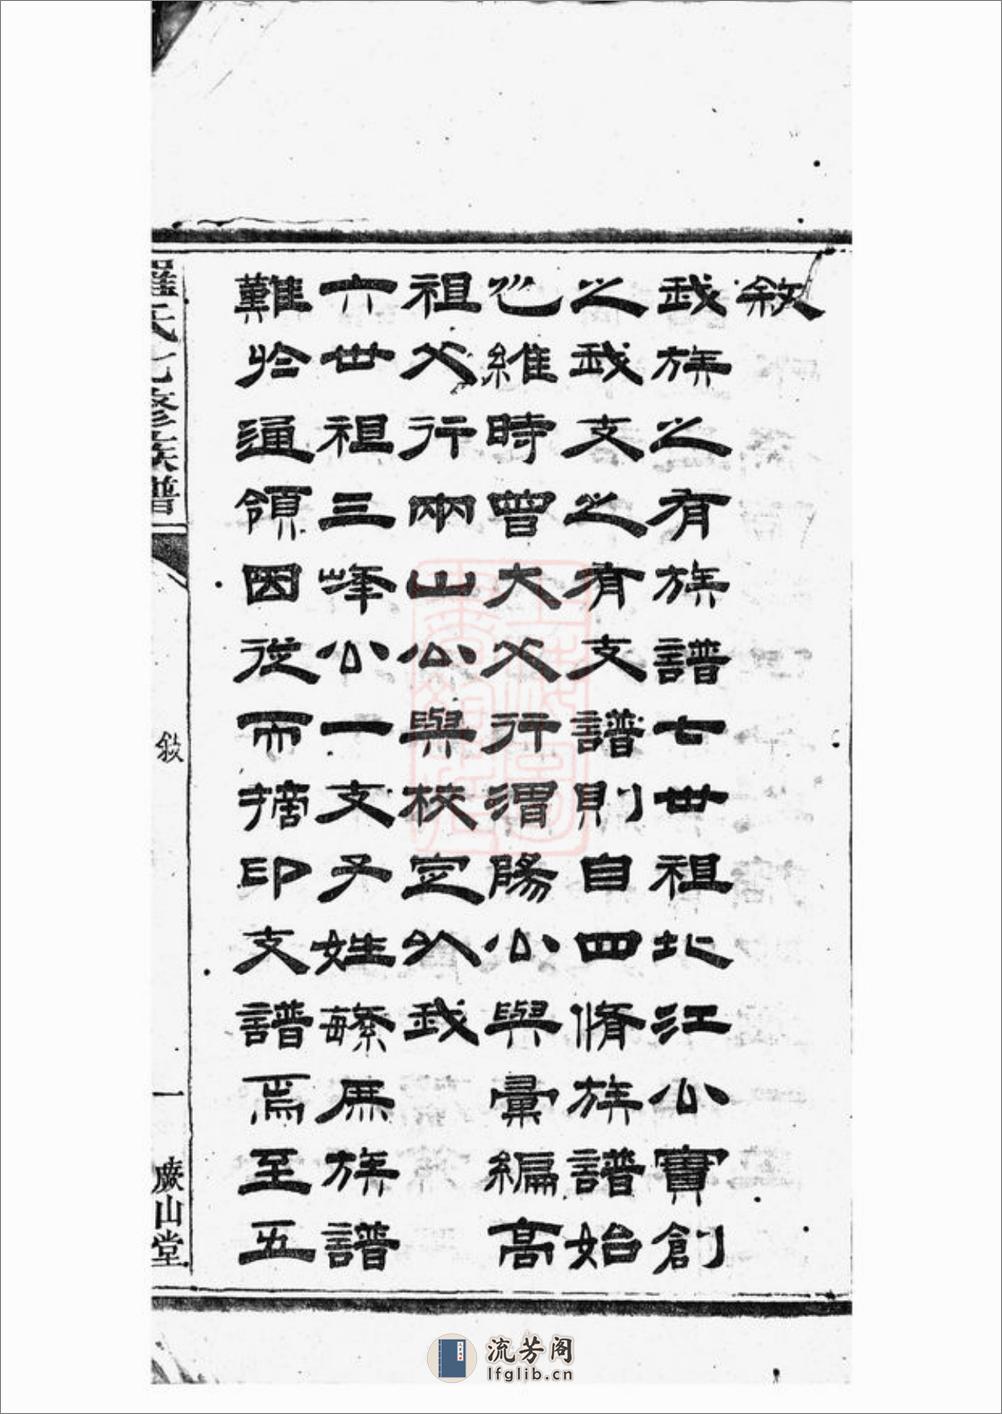 敘
我族之有族譜七世祖北江公實創
之我支之有支譜則自四脩族譜始
也維時曾大父行渭陽公與彙編高
祖父行兩山公與校定以我
六世祖三峰公一支子姓繁庶族譜
難於通領因從而摘印支譜焉至五
羅氏七修族譜
敘
一
蕨山堂
流芳阁
lfglib.cn